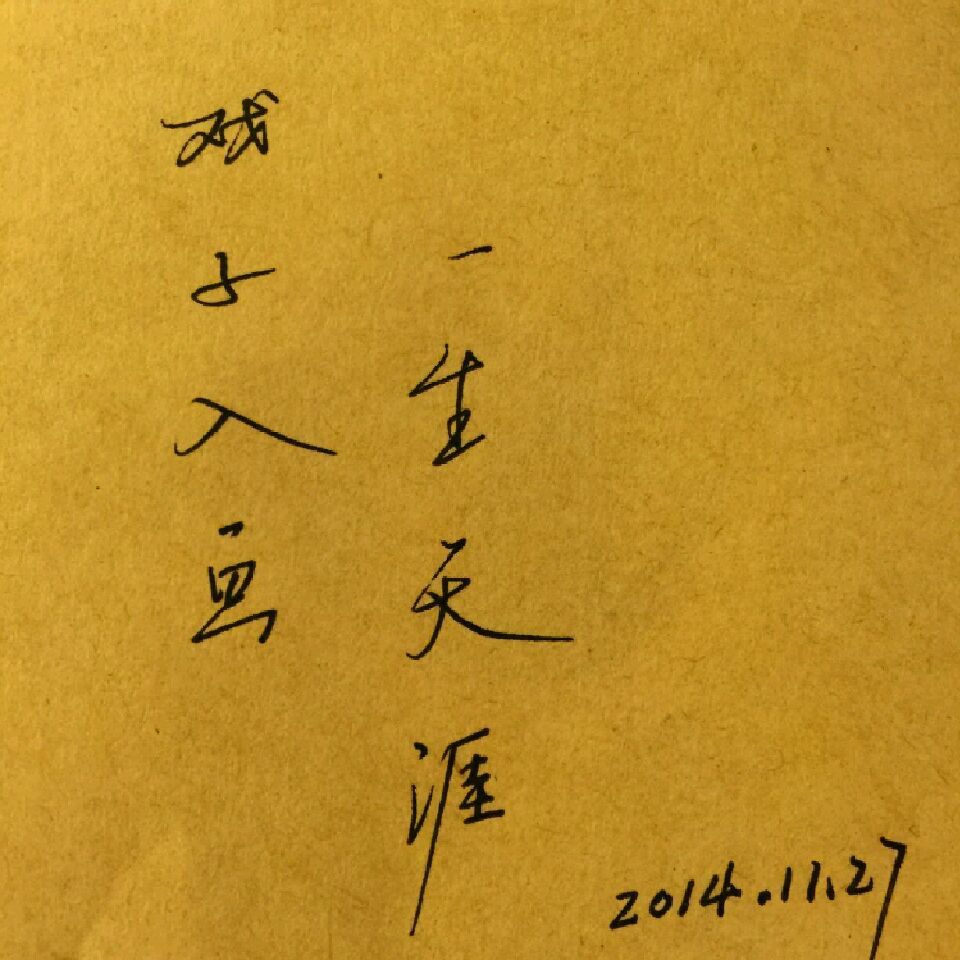 戏子入画
一生天涯
2014.11.27